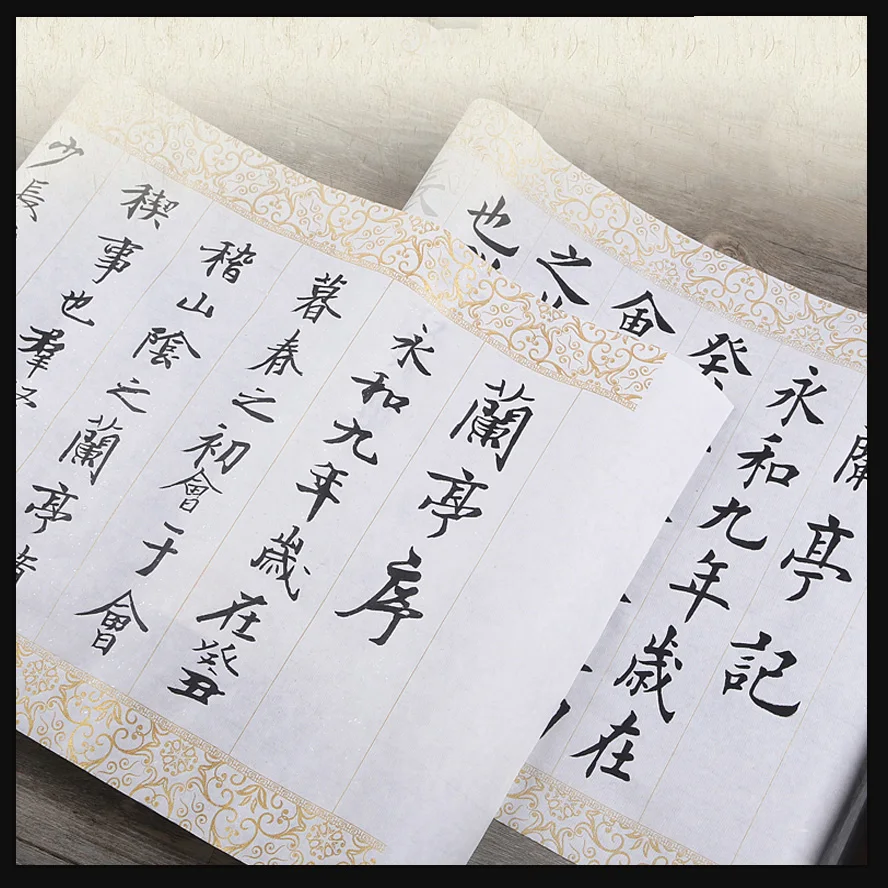 蘭亭序
永和九年歲在癸丑
暮春之初會于會
稽山陰之蘭亭
稧事也羣
少長
蘭亭記
永和九年歲在
癸
會
之
也